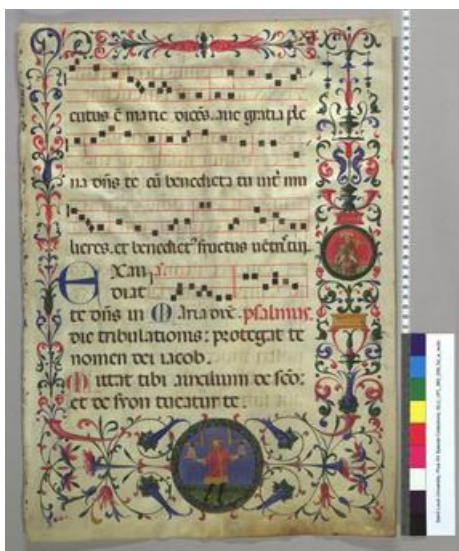 cutus ē marie dicēs. aue gratia ple
na dn̄s te cū benedicta tu int̉ mu
lieres. et benedict⁹ fructus uētri tui.
Exau
diat
te dn̄s in Maria dixit psalmus.
die tribulationis: protegat te
nomen dei iacob.
Mittat tibi auxilium de sc̄o:
et de syon tueatur te.